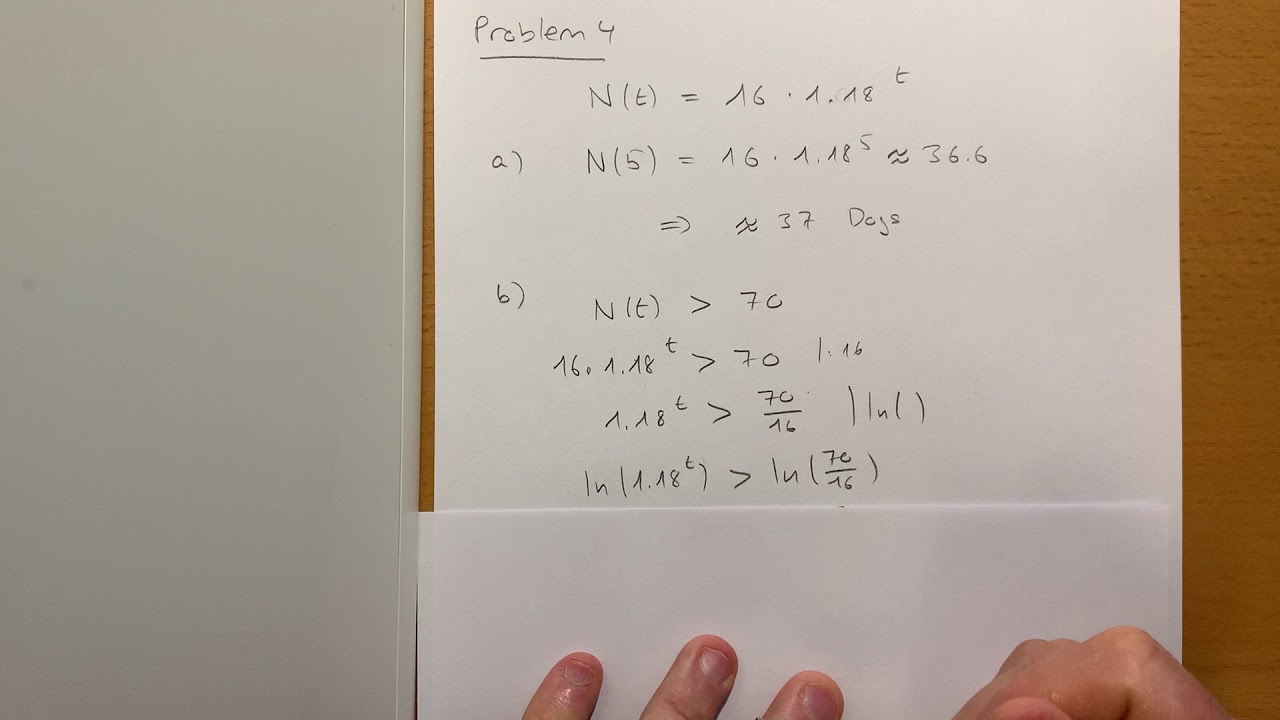 Problem 4
N(t) = 16 · 1.18^t
a) N(5) = 16 · 1.18^5 ≈ 36.6
⇒ ≈ 37 Days
b) N(t) > 70
16 · 1.18^t > 70 | : 16
1.18^t > 70/16 | ln( )
ln(1.18^t) > ln(70/16)